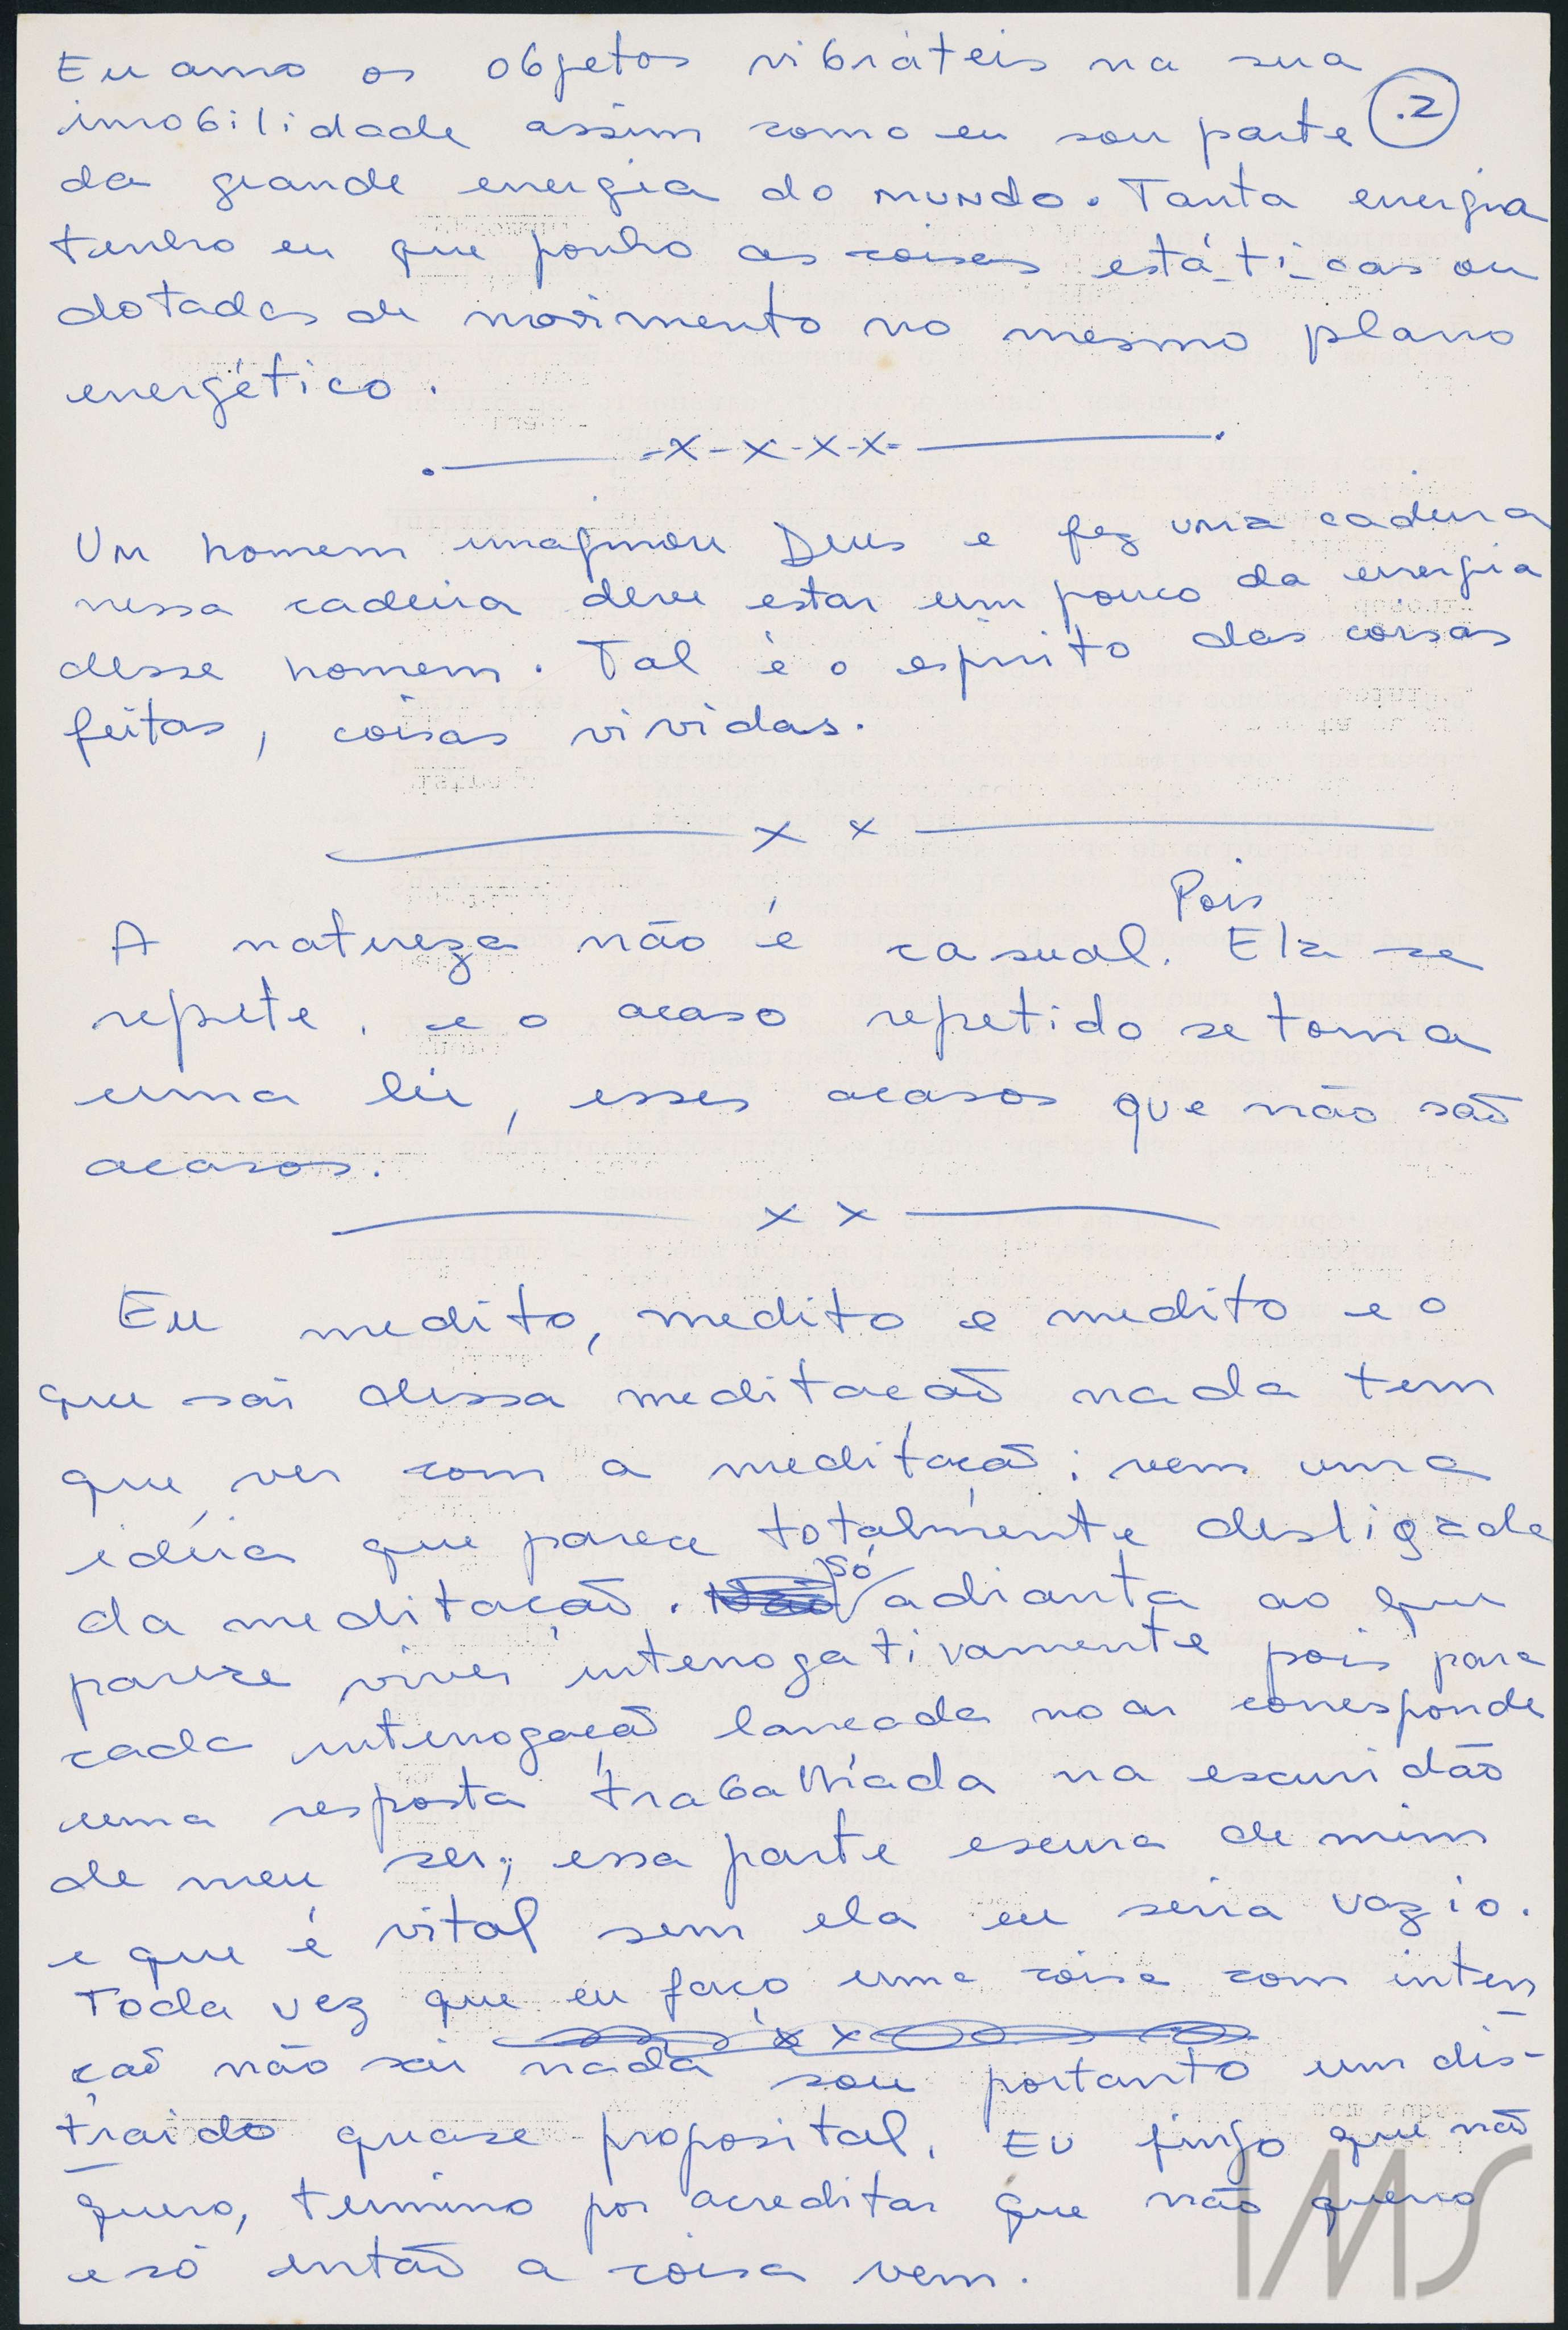 Eu amo os objetos vibráteis na sua
imobilidade assim como eu sou parte .2
da grande energia do mundo. Tanta energia
tenho eu que ponho as coisas está-ti-cas ou
dotadas de movimento no mesmo plano
energético.
.———-x-x-x-x-———.
Um homem imaginou Deus e fez uma cadeira
nessa cadeira deve estar um pouco da energia
desse homem. Tal é o espírito das coisas
feitas, coisas vividas.
——— x x ———
Pois
A natureza não é casual. Ela se
repete, e o acaso repetido se torna
uma lei, esses acasos que não são
acasos.
——— x x ———
Eu medito, medito e medito e o
que sai dessa meditação nada tem
que ver com a meditação: vem uma
idéia que parece totalmente desligada
só
da meditação. Não adianta ao que
parece viver interrogativamente pois para
cada interrogação lançada no ar corresponde
uma resposta trabalhada na escuridão
de meu ser, essa parte escura de mim
e que é vital sem ela eu seria vazio.
Toda vez que eu faço uma coisa com inten
x x
ção não sai nada sou portanto um dis-
traido quase proposital. Eu finjo que não
quero, termino por acreditar que não quero
e só então a coisa vem.
IMS